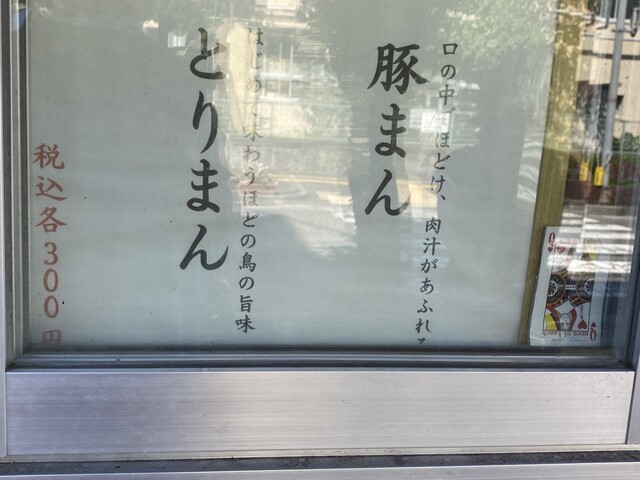 口の中でほどけ、肉汁があふれる
豚まん
はじめて味わうほどの鳥の旨味
とりまん
税込各300円